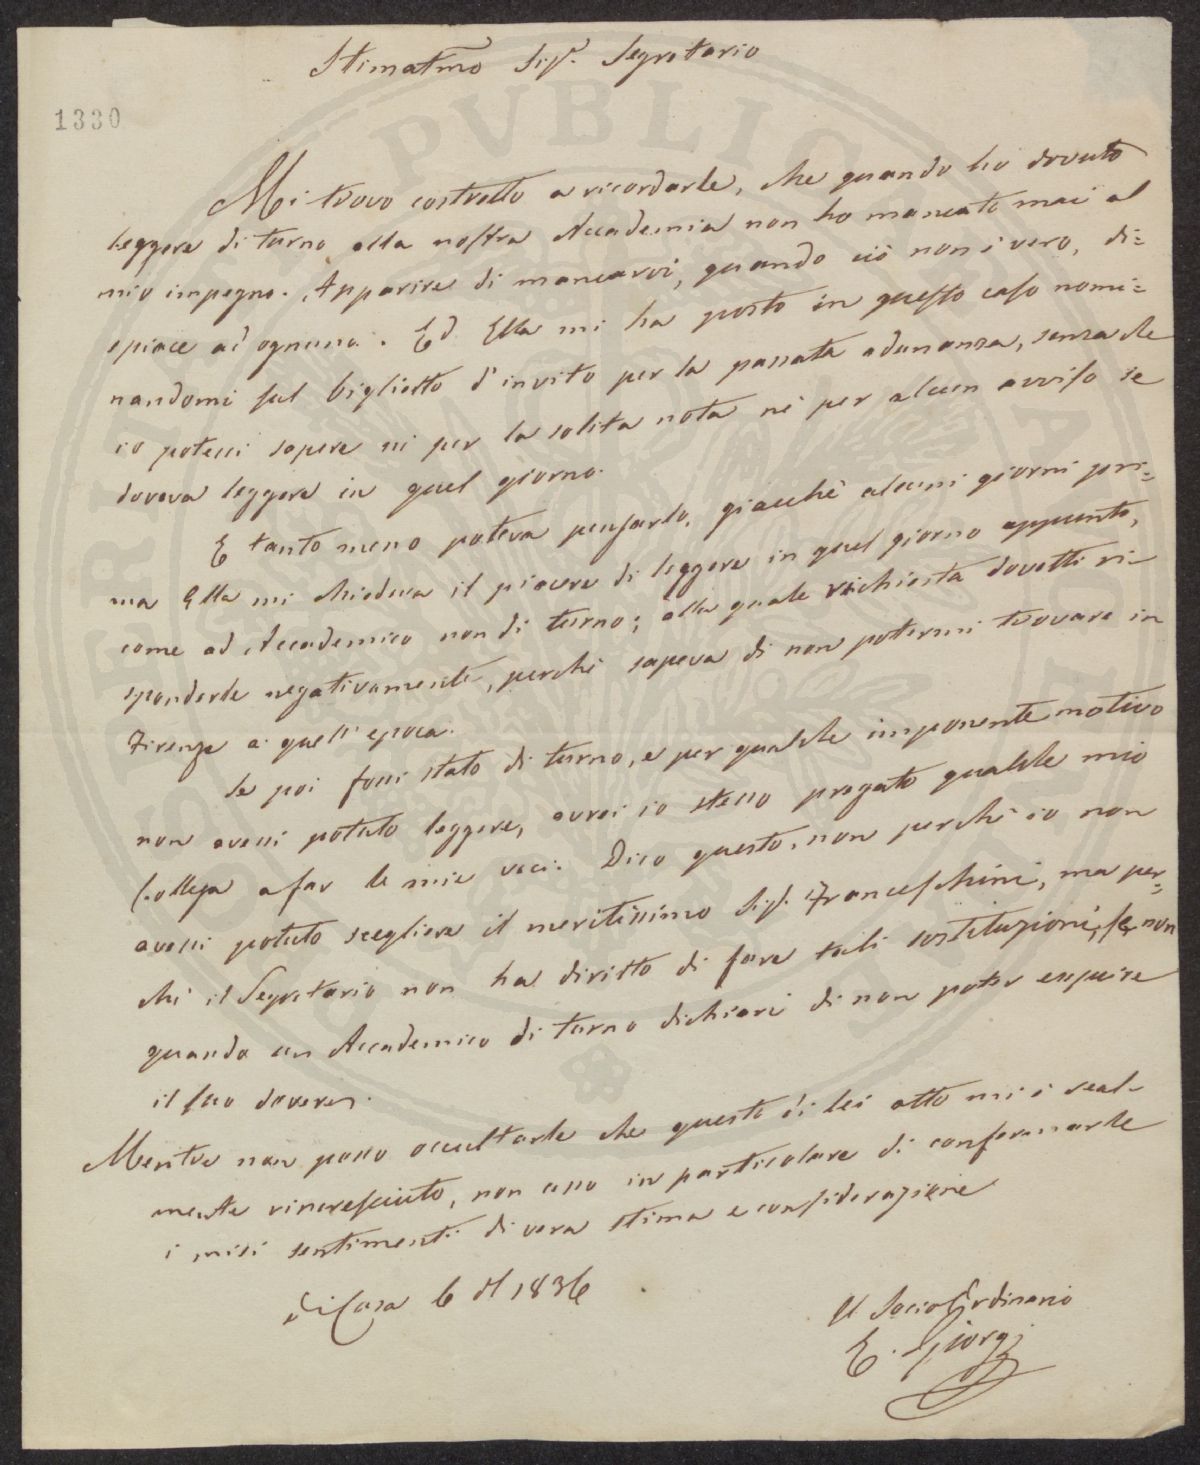 Stimatmo Sigr. Segretario
1330
Mi trovo costretto a ricordarle, che quando ho dovuto
leggere di turno alla nostra Accademia non ho mancato mai al
mio impegno. Apparire di mancarvi, quando ciò non è vero, di=
spiace ad ognuno. Ed Ella mi ha posto in questo caso nomi=
nandomi sul biglietto d'invito per la passata adunanza, senza che
io potessi sapere nè per la solita nota nè per alcun avviso se
doveva leggere in quel giorno.
E tanto meno poteva pensarlo, giacchè alcuni giorni pri=
ma Ella mi chiedeva il piacere di leggere in quel giorno appunto,
come ad Accademico non di turno; alla quale richiesta dovetti ri-
sponderle negativamente, perchè sapeva di non potermi trovare in
Firenze a quell'epoca.
Se poi fossi stato di turno, e per qualche imponente motivo
non avessi potuto leggere, avrei io stesso pregato qualche mio
Collega a far le mie veci. Dico questo, non perchè io non
avessi potuto scegliere il meritissimo Sigr. Franceschini, ma per=
chè il Segretario non ha diritto di fare tali sostituzioni, se non
quando un Accademico di turno dichiari di non poter eseguire
il suo dovere.
Mentre non posso occultarle che questo di lei atto mi è real-
mente rincresciuto, non cesso in particolare di confermarle
i miei sentimenti di vera stima e considerazione
Di Casa 6 1836
Il Socio Ordinario
E. Giorgi